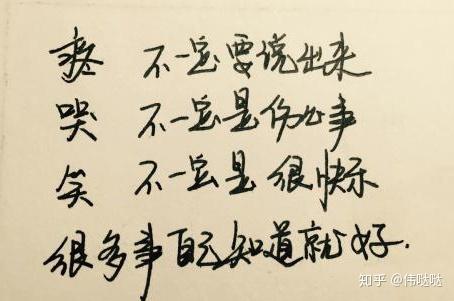 疼 不一定要说出来
哭 不一定是伤心事
笑 不一定是很快乐
很多事自己知道就好.
知乎 @伟哒哒